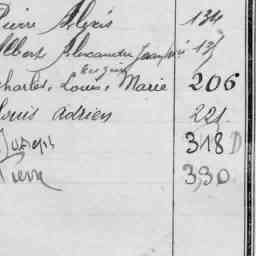 Pierre Alexis 134
Albert Alexandre 137
Eugène
Charles, Louis, Marie 206
Louis Adrien 221
Joseph 318 D
Pierre 330